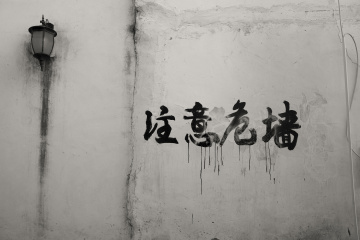 注意危墙